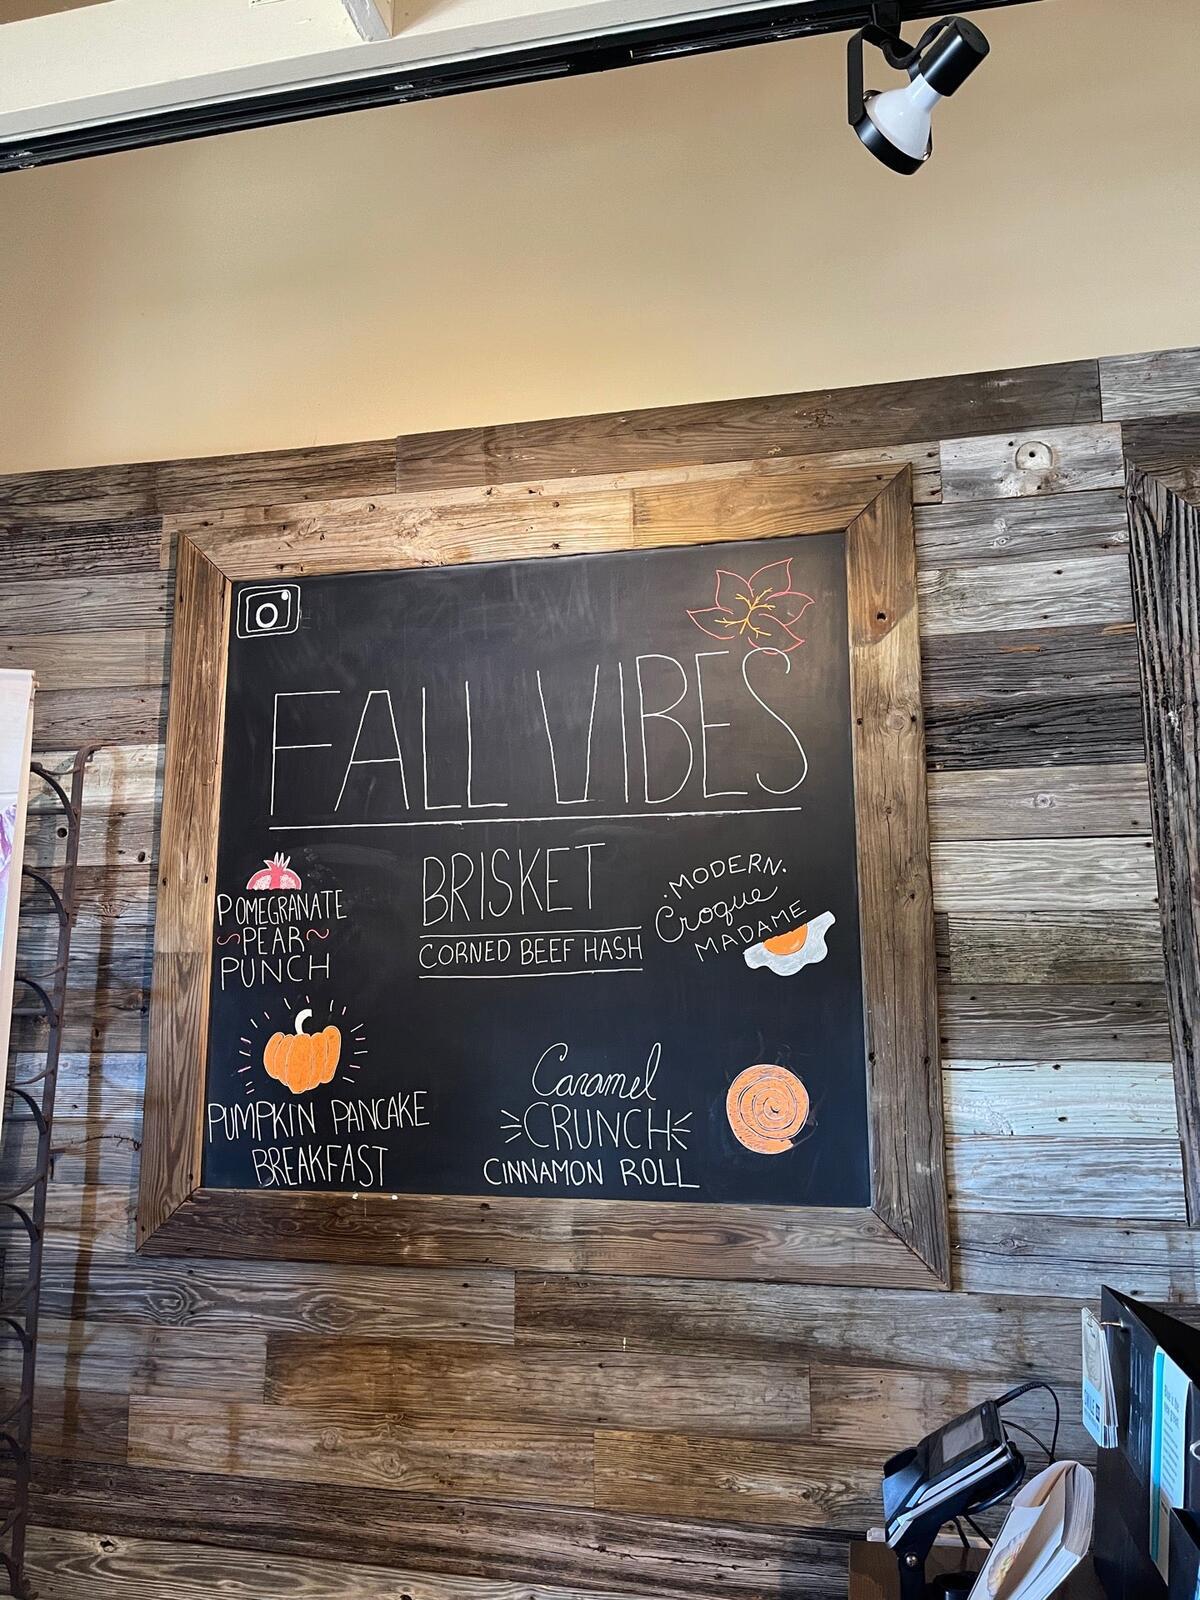 FALL VIBES
POMEGRANATE
PEAR
PUNCH
BRISKET
CORNED BEEF HASH
MODERN
Croque
MADAME
PUMPKIN PANCAKE
BREAKFAST
Caramel
CRUNCH
CINNAMON ROLL